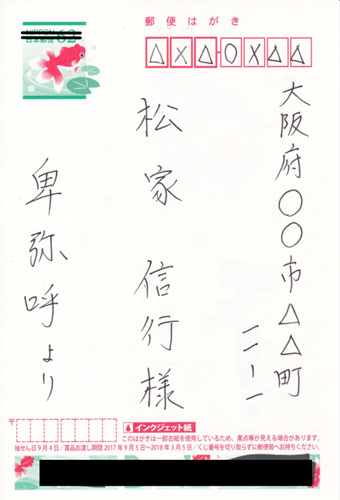 郵便はがき
△×△○×△△
大阪府○○市△△町
一一ー一
松家 信行様
卑弥呼より
日本郵便 62
〒
インクジェット紙
このはがきは一部古紙を使用しているため、黒点等が見える場合があります。
抽せん日9月4日/賞品お渡し期間2017年9月5日〜2018年3月5日/くじ番号を切り取らずに郵便局へお持ちください。